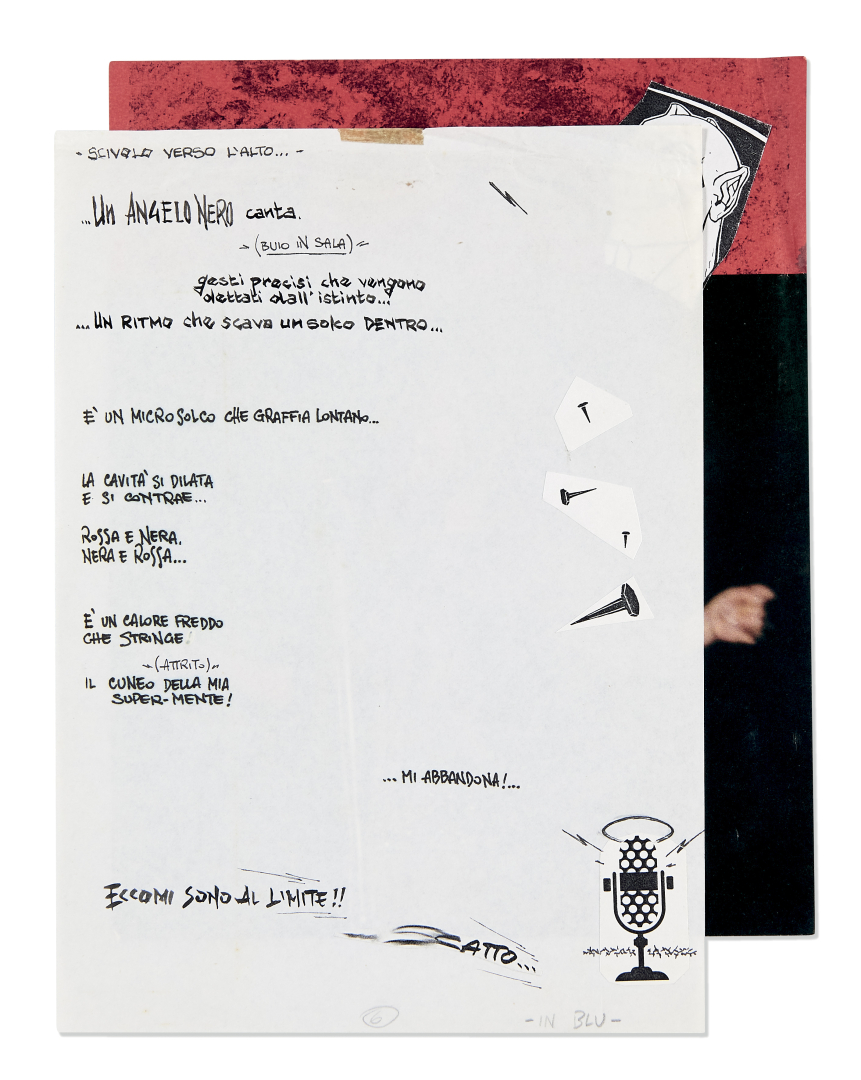 - SCIVOLO VERSO L'ALTO... -
...Un ANGELO NERO canta.
(BUIO IN SALA)
gesti precisi che vengono
dettati dall'istinto...
...UN RITMO che scava un solco DENTRO...
E` UN MICROSOLCO CHE GRAFFIA LONTANO...
LA CAVITA` SI DILATA
E SI CONTRAE...
ROSSA E NERA.
NERA E ROSSA...
E` UN CALORE FREDDO
CHE STRINGE
(ATTRITO)
IL CUNEO DELLA MIA
SUPER-MENTE!
... MI ABBANDONA!...
ECCOMI SONO AL LIMITE!!
SCATTO...
6
- IN BLU -